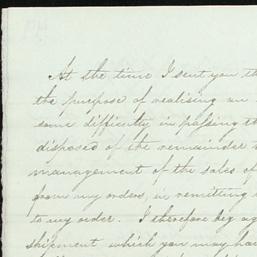 At the time I sent you th
the purpose of realising an
some difficulty in passing th
disposed of the remainder
management of the sales of
from my orders, in remitting
to my order. I therefore beg ag
shipment which you may ha